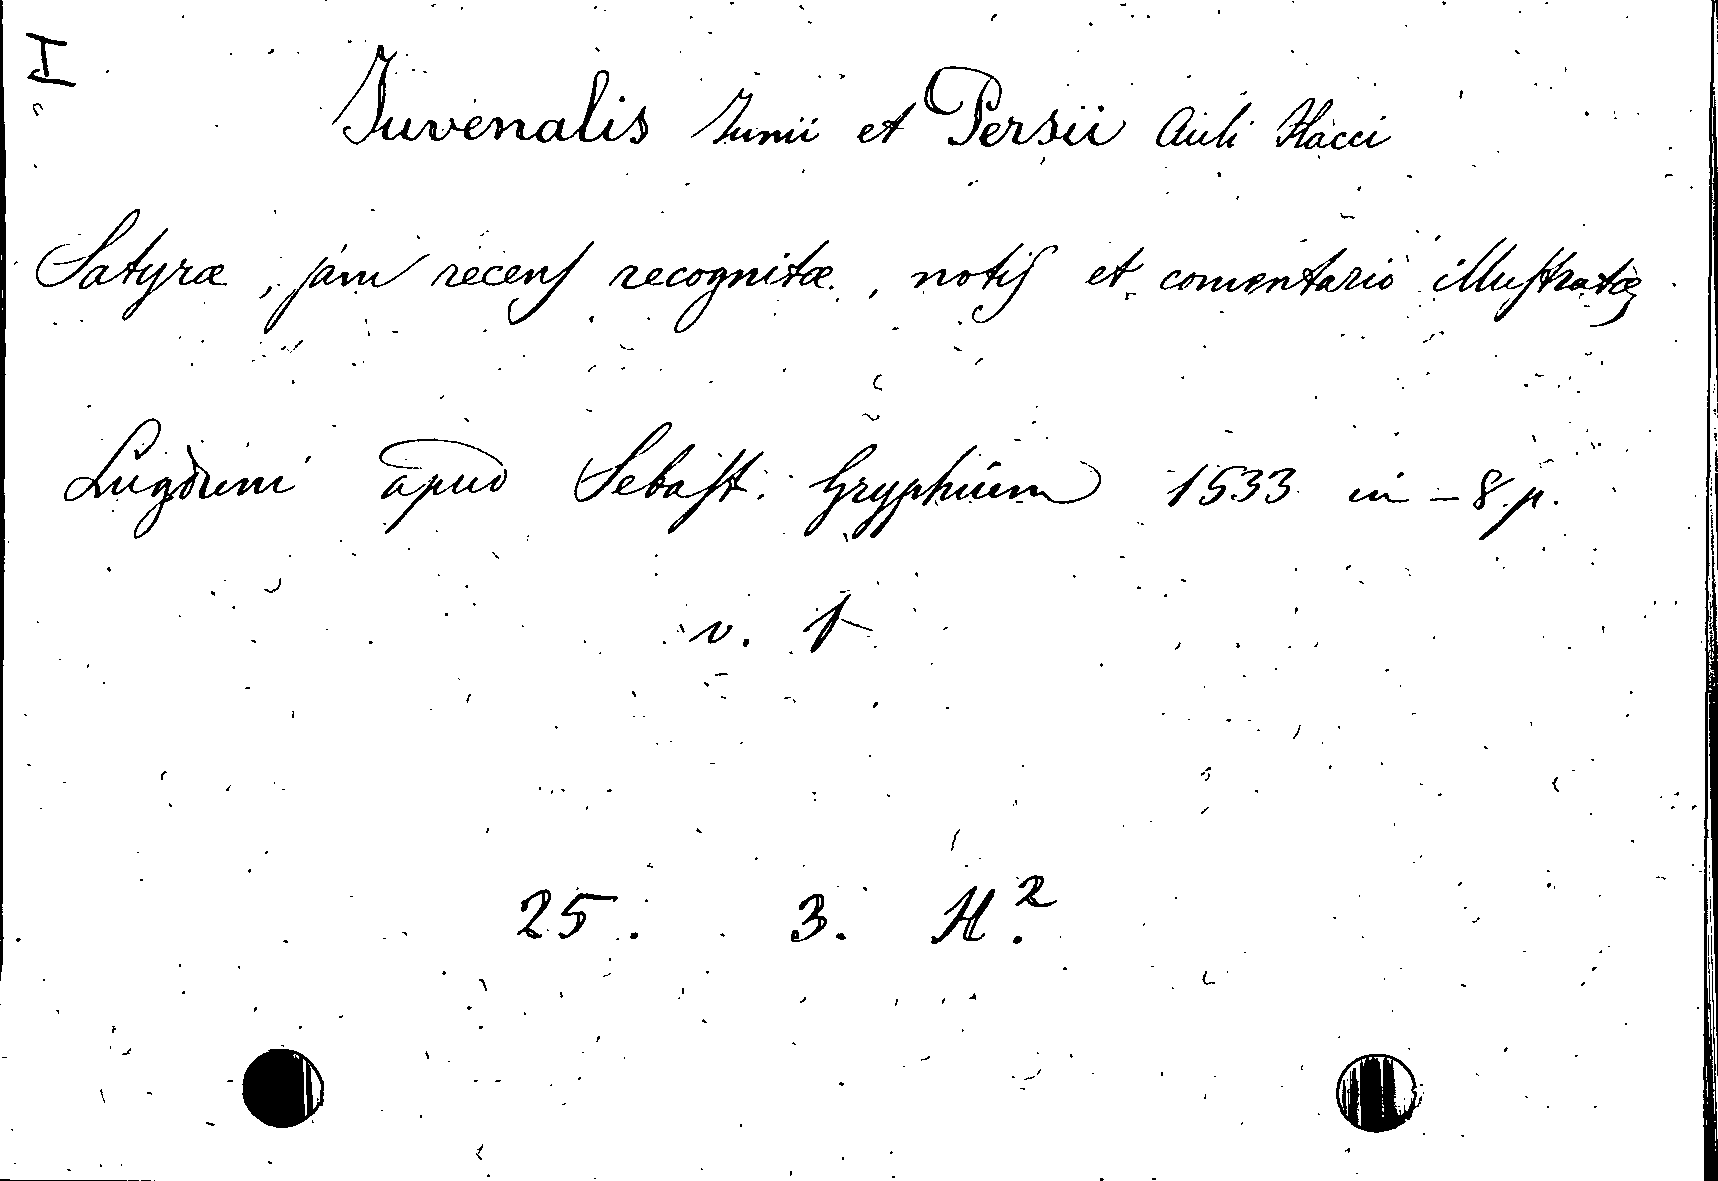 I
Juvenalis Junii et Persii Auli Flacci
Satyræ, jam recens recognitæ, notis et comentario illustratæ
Lugduni apud Sebast. Gryphium 1533 in-8. p.
v. 1
25. 3. H.²